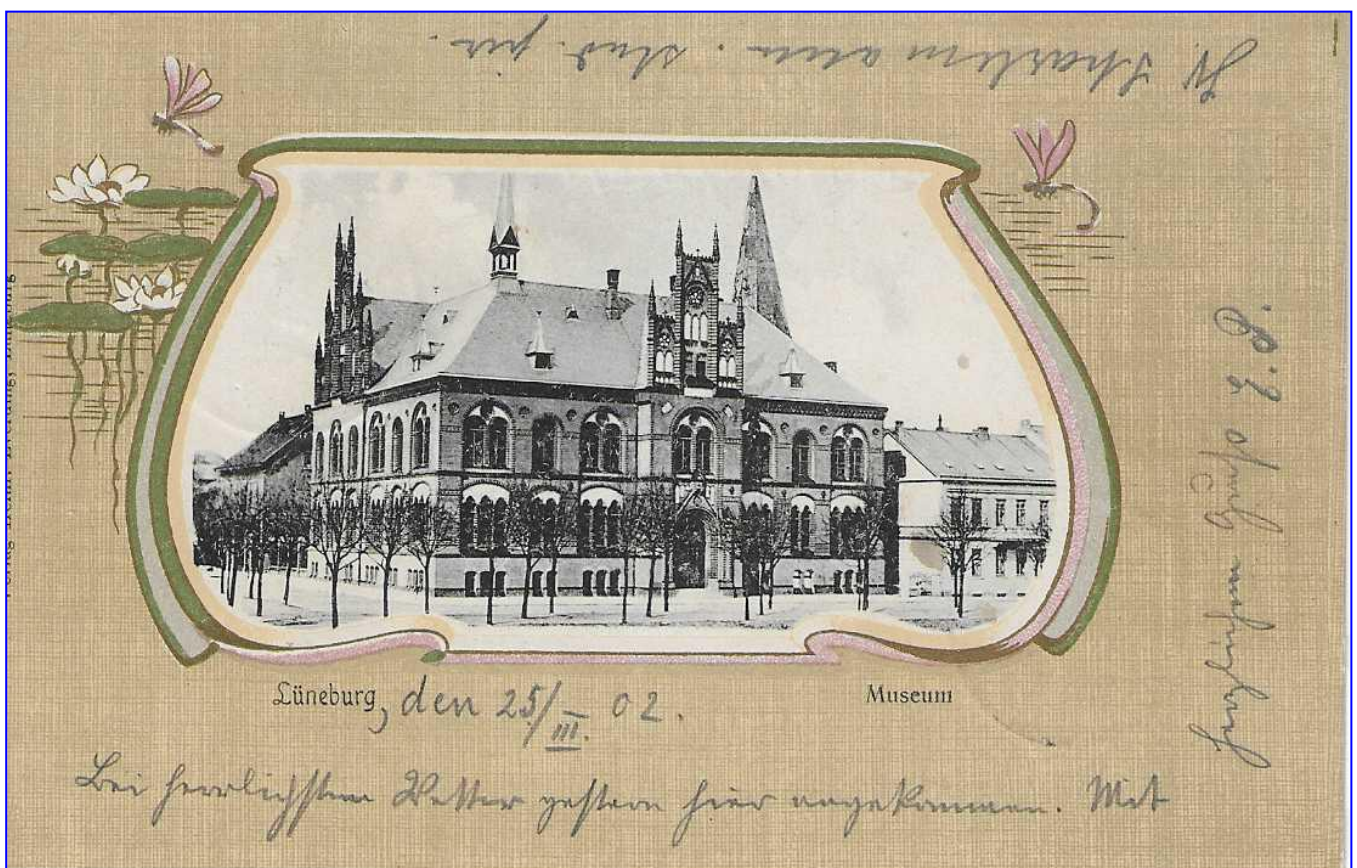 Lüneburg, den 25/III. 02.
Museum
Bei herrlichstem Wetter gestern hier angekommen. Mit
Gruß
stud. jur.